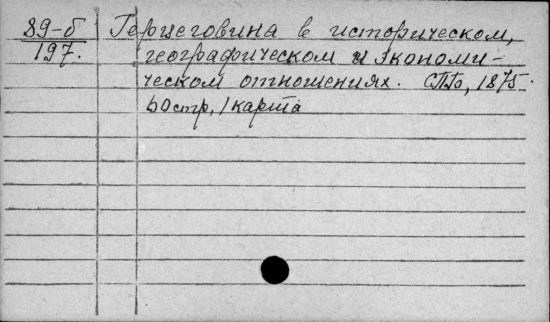 89-б Герцеговина в историческом,
197. географическом и экономи-
ческом отношениях. СПб, 1875.
60 стр, 1 карта